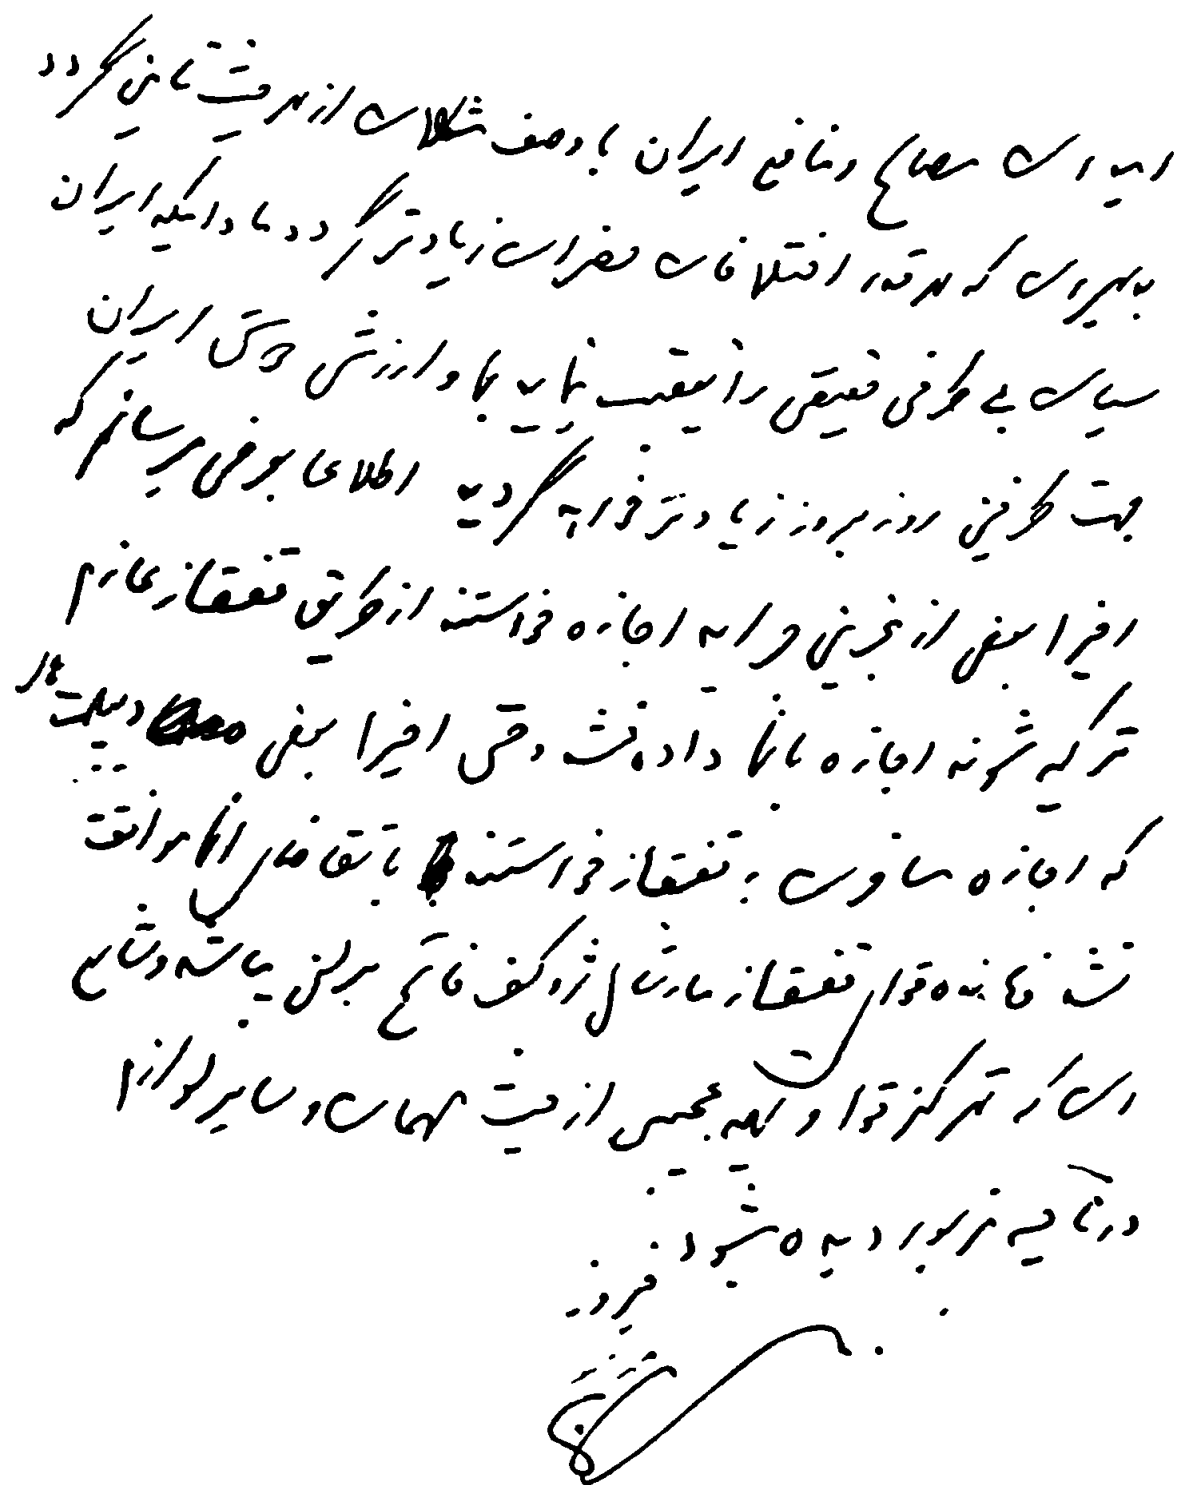 امیدوارم مصالح و منافع ایران با وصف مشکلات از هر حیث تامین گردد
بهر که هر قدر اختلافات زیادتر گردد مادامیکه ایران
سیاست بی طرفی حقیقی را تعقیب نماید بها و ارزش ایران
جهت طرفین روز بروز زیادتر خواهد گردید اطلاعا بعرض میرساند که
اخیرا بعضی از خواجه اجازه خواستند از طریق قفقاز عازم
ترکیه شوند اجازه بآنها داده نشد و حتی اخیرا بعضی دیپلمات ها
که اجازه مسافرت به قفقاز خواستند با تقاضای آنها موافقت
نشد فرمانده قوای قفقاز مارشال ژوکف فاتح برلن میباشد و شایع
است که تمرکز قوا و تهیه عجیبی از حیث مهمات و سایر لوازم
در ناحیه مزبور دیده میشود